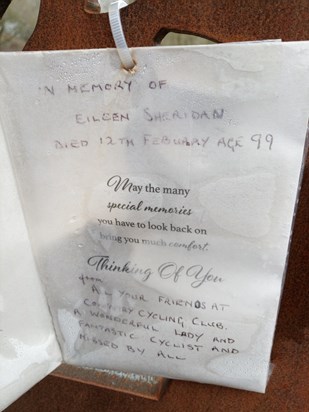 IN MEMORY OF
EILEEN SHERIDAN
DIED 12TH FEBUARY AGE 99
May the many
special memories
you have to look back on
bring you much comfort.
Thinking Of You
from
ALL YOUR FRIENDS AT
COVENTRY CYCLING CLUB.
A WONDERFUL LADY AND
FANTASTIC CYCLIST AND
MISSED BY ALL